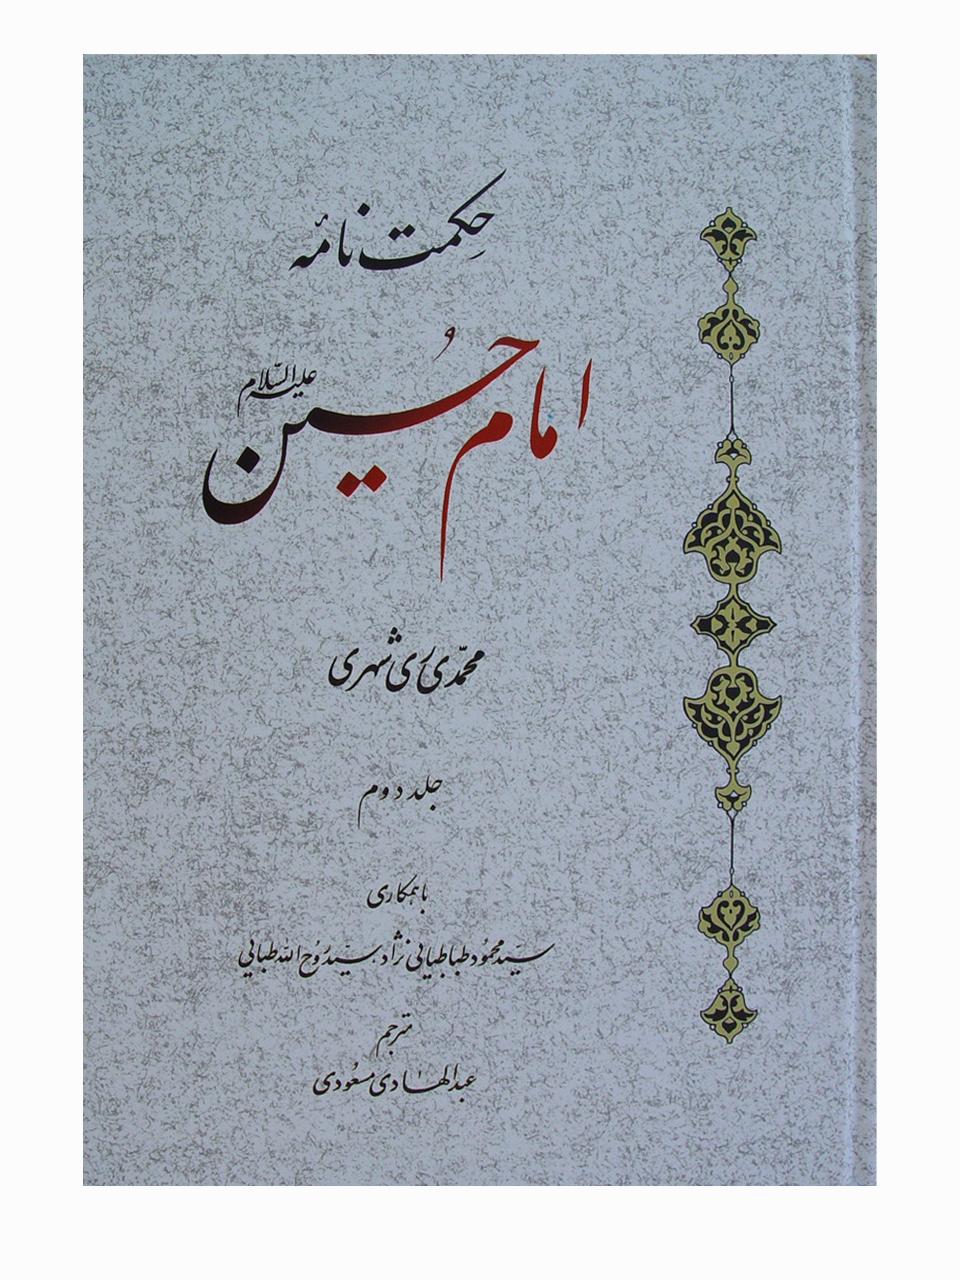 حِکمت نامهٔ
امام حُسین علیه السّلام
محمّدی ری شهری
جلد دوم
با همکاری
سیّد محمُود طباطبایی نژاد، سیّد رُوح الله طبایی
مترجم
عبدالهادی مسعُودی